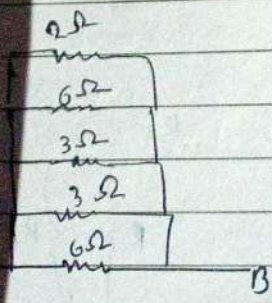 2Ω
6Ω
3Ω
3Ω
6Ω
B